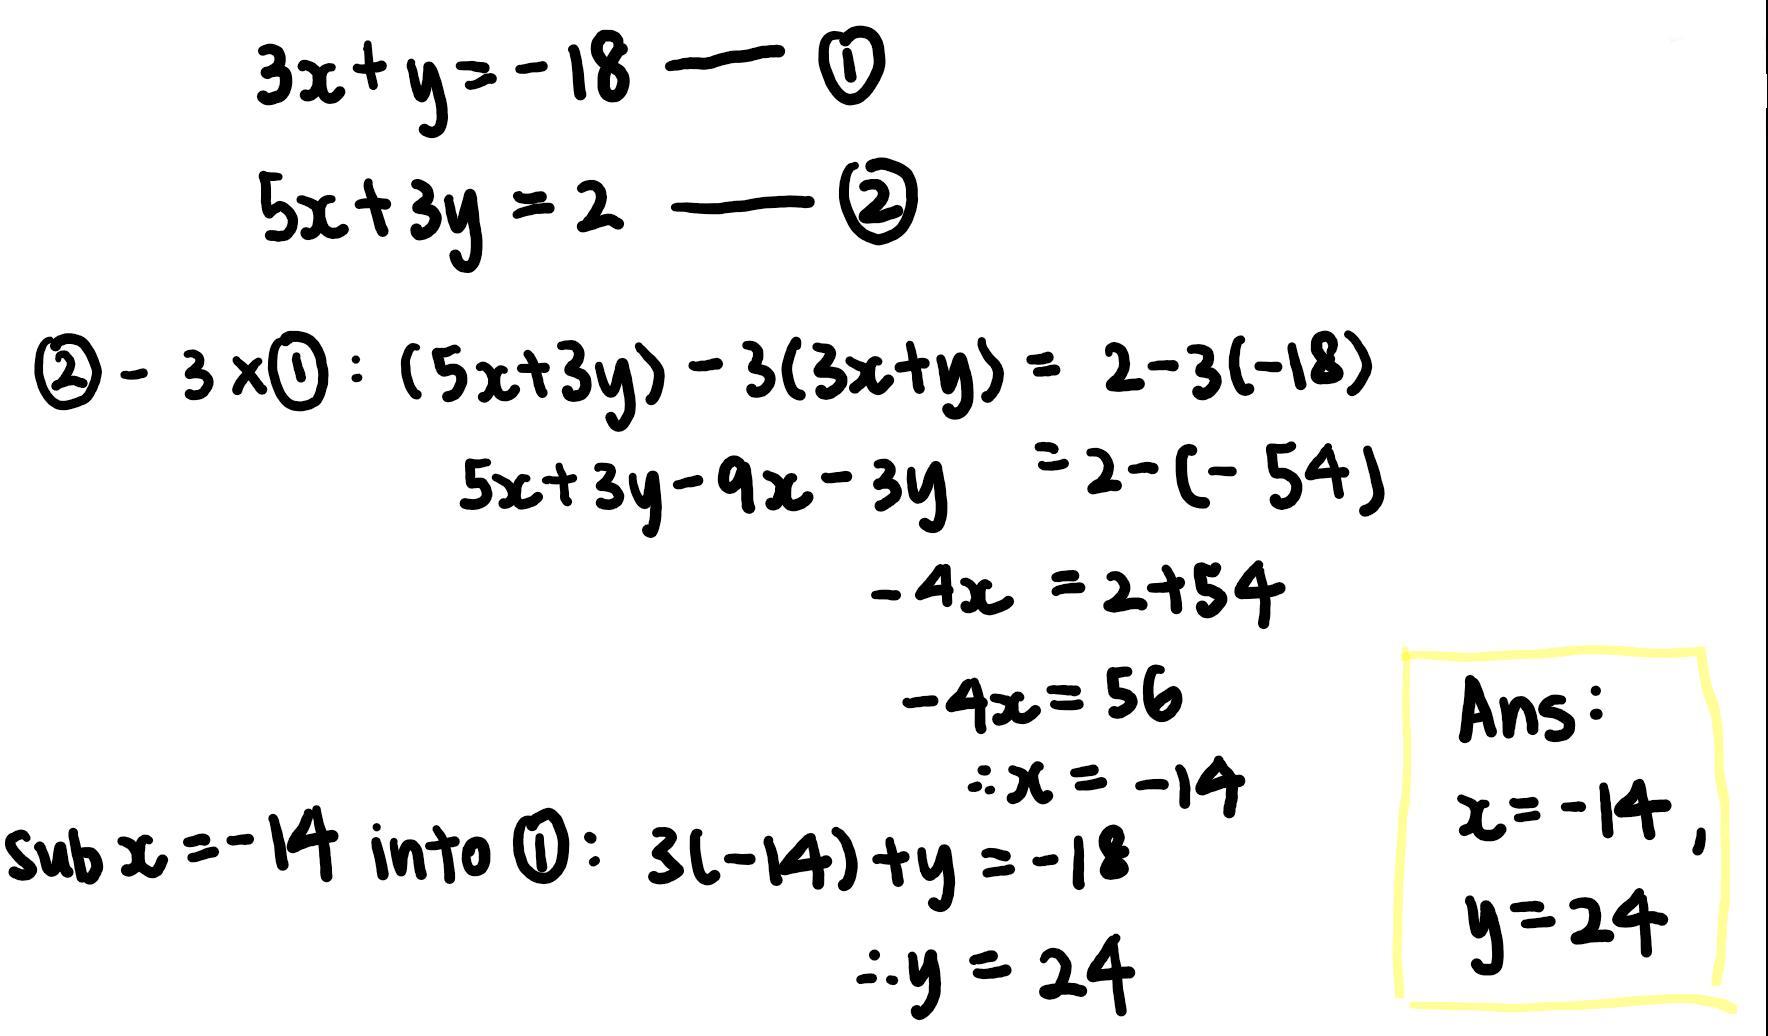 3x + y = -18 — ①
5x + 3y = 2 — ②
② - 3 × ① : (5x+3y) - 3(3x+y) = 2-3(-18)
5x + 3y - 9x - 3y = 2-(-54)
-4x = 2+54
-4x = 56
∴ x = -14
sub x = -14 into ① : 3(-14) + y = -18
∴ y = 24
Ans:
x = -14,
y = 24